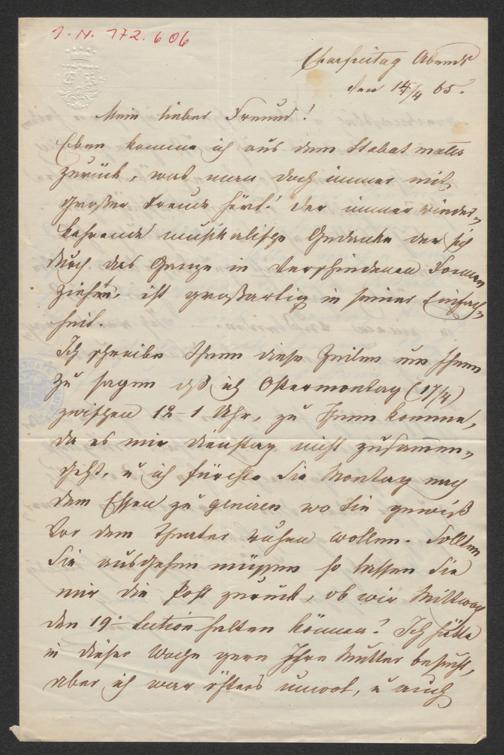 J. N. 172.606
Charfreitag Abends
den 14/4 65.
Mein lieber Freund!
Eben komme ich aus dem Stabat mater
zurück, was man doch immer mit
großer Freude hört! der immer wieder-
kehrende musikalische Gedanke der sich
durch das Ganze in verschiedenen Formen
zieht, ist großartig in seiner Einfach-
heit.
Ich schreibe Ihnen diese Zeilen um Ihnen
zu sagen daß ich Ostermontag (17/4)
zwischen 12-1 Uhr, zu Ihnen komme,
da es mir Dienstag nicht zusammen-
geht, u ich fürchte Sie Montag nach
dem Essen zu geniren wo Sie gewiß
vor dem Theater ruhen wollen. Sollten
Sie ausgehen müssen so lassen Sie
mir die Post zurück, ob wir Mittwoch
den 19t Lection halten können? Ich hätte
in dieser Woche gern Ihre Mutter besucht,
aber ich war öfters unwol, u auch